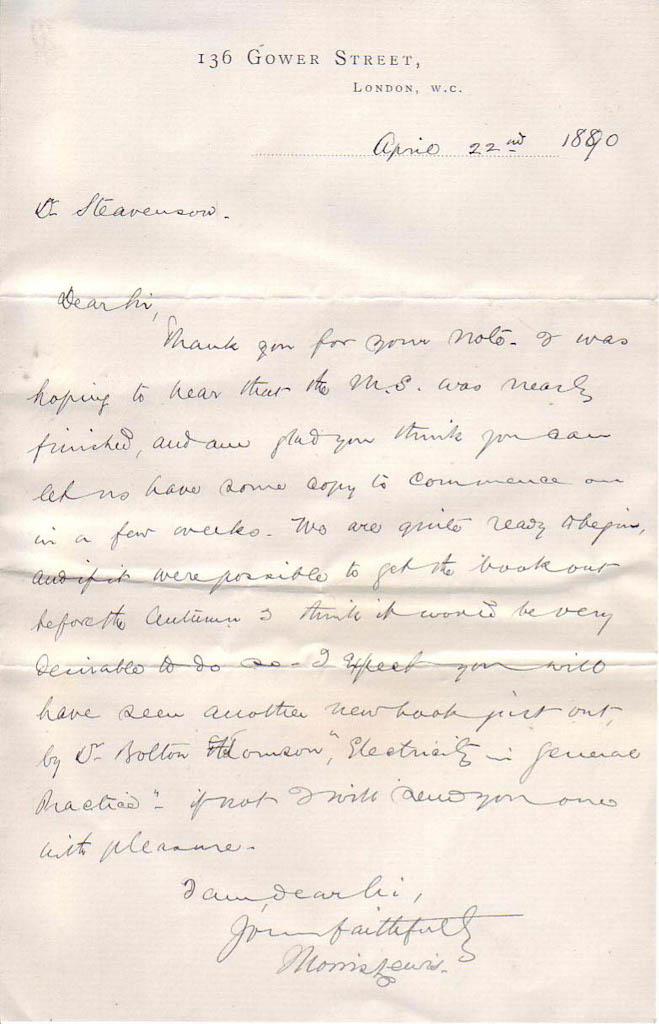 136 Gower Street,
London, W.C.
April 22nd 1890
Dr Steavenson.
Dear Sir,
Thank you for your note. I was
hoping to hear that the M.S. was nearly
finished, and am glad you think you can
let us have some copy to commence on
in a few weeks. We are quite ready to begin,
and if it were possible to get the book out
before the Autumn I think it would be very
desirable to do so - I expect you will
have seen another new book just out,
by Dr Bolton Thomson, "Electricity in General
Practice" - if not I will send you one
with pleasure.
I am, dear Sir,
Yours faithfully
Morris Lewis.